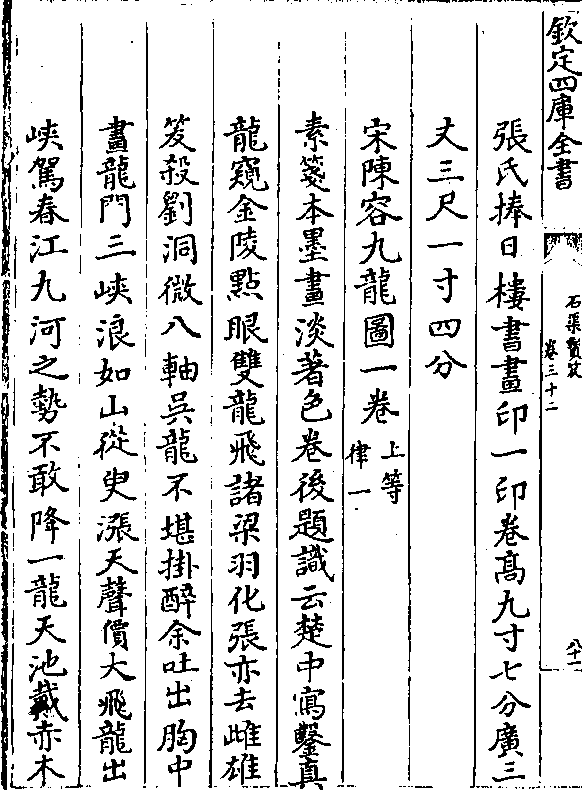 欽定四庫全書
石渠寶笈
卷三十二
八十一
張氏捧日樓書畫印一印卷髙九寸七分廣三
丈三尺一寸四分
宋陳容九龍圖一卷 上等
律一
素箋本墨畫淡著色卷後題識云楚中寫鑿真
龍窺金陵點眼雙龍飛諸梁羽化張亦去雌雄
笈殺劉洞微八軸呉龍不堪掛醉余吐出胸中
畫龍門三峽浪如山從臾漲天聲價大飛龍出
峽駕春江九河之勢不敢降一龍天池戴赤木